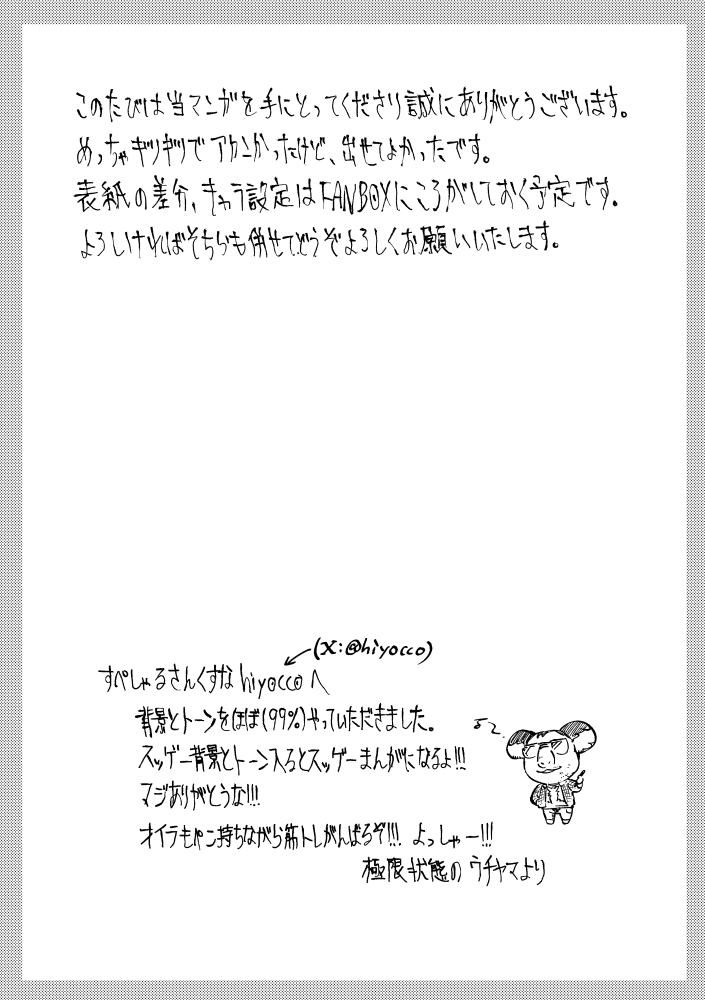 このたびは当マンガを手にとってくださり誠にありがとうございます。
めっちゃギリギリでアカンかったけど、出せてよかったです。
表紙の差分、キャラ設定はFANBOXにころがしておく予定です。
よろしければそちらも併せてどうぞよろしくお願いいたします。
(X:@hiyocco)
すぺしゃるさんくすな hiyoccoへ
背景とトーンをほぼ(99%)やっていただきました。
スッゲー背景とトーン入るとスッゲーまんがになるよ!!!
マジありがとうな!!!
オイラもペン持ちながら筋トレがんばるぞ!!! よっしゃー!!!
極限状態の ウチヤマより